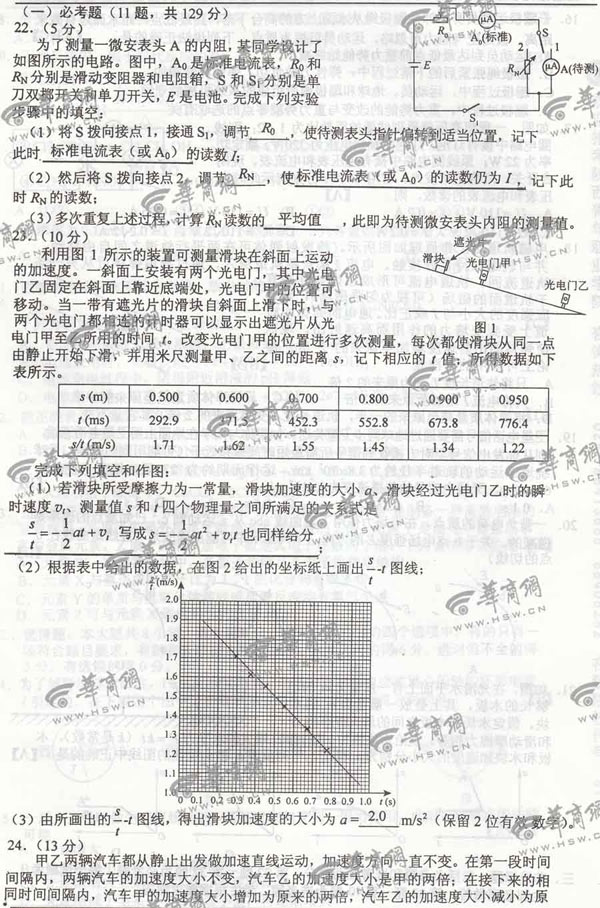 （一）必考题（11题，共129分）
22.（5分）
为了测量一微安表头A的内阻，某同学设计了
如图所示的电路。图中，A₀是标准电流表，R₀和
R_N分别是滑动变阻器和电阻箱，S和S₁分别是单
刀双掷开关和单刀开关，E是电池。完成下列实验
步骤中的填空：
R₀ μA A₀(标准) S
E 2 1
R_N μA A(待测)
S₁
（1）将S拨向接点1，接通S₁，调节 R₀ ，使待测表头指针偏转到适当位置，记下
此时 标准电流表（或A₀） 的读数I；
（2）然后将S拨向接点2，调节 R_N ，使 标准电流表（或A₀）的读数仍为I ，记下此
时R_N的读数；
（3）多次重复上述过程，计算R_N读数的 平均值 ，此即为待测微安表头内阻的测量值。
23.（10分）
利用图1所示的装置可测量滑块在斜面上运动
的加速度。一斜面上安装有两个光电门，其中光电
门乙固定在斜面上靠近底端处，光电门甲的位置可
移动。当一带有遮光片的滑块自斜面上滑下时，与
两个光电门都相连的计时器可以显示出遮光片从光
遮光片
滑块
光电门甲
光电门乙
图1
电门甲至乙所用的时间t。改变光电门甲的位置进行多次测量，每次都使滑块从同一点
由静止开始下滑，并用米尺测量甲、乙之间的距离s，记下相应的t值；所得数据如下
表所示。
s (m) 0.500 0.600 0.700 0.800 0.900 0.950
t (ms) 292.9 371.5 452.3 552.8 673.8 776.4
s/t (m/s) 1.71 1.62 1.55 1.45 1.34 1.22
完成下列填空和作图：
（1）若滑块所受摩擦力为一常量，滑块加速度的大小a、滑块经过光电门乙时的瞬
时速度v_t、测量值s和t四个物理量之间所满足的关系式是
s/t=-1/2at+v_t 写成s=-1/2at²+v_t t也同样给分 ；
（2）根据表中给出的数据，在图2给出的坐标纸上画出s/t-t图线；
s/t(m/s)
2.0
1.9
1.8
1.7
1.6
1.5
1.4
1.3
1.2
1.1
1.0
0 0.1 0.2 0.3 0.4 0.5 0.6 0.7 0.8 0.9 1.0 t(s)
（3）由所画出的s/t-t图线，得出滑块加速度的大小为a= 2.0 m/s²（保留2位有效数字）。
24.（13分）
甲乙两辆汽车都从静止出发做加速直线运动，加速度方向一直不变。在第一段时间
间隔内，两辆汽车的加速度大小不变，汽车乙的加速度大小是甲的两倍；在接下来的相
同时间间隔内，汽车甲的加速度大小增加为原来的两倍，汽车乙的加速度大小减小为原
华商网
WWW.HSW.CN